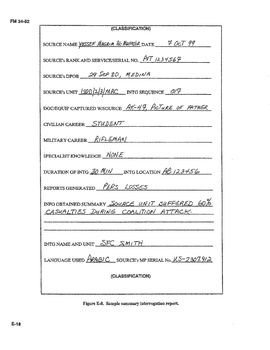 FM 34-52
(CLASSIFICATION)
SOURCE NAME YOSSEF DATE 7 OCT 99
SOURCE'S RANK AND SERVICE/SERIAL NO. PVT 1234567
SOURCE'S DPOB 29 SEP 80, MEDINA
SOURCE'S UNIT INTO SEQUENCE 017
DOC/EQUIP CAPTURED W/SOURCE AK-47, PICTURE OF FATHER
CIVILIAN CAREER STUDENT
MILITARY CAREER RIFLEMAN
SPECIALIST KNOWLEDGE NONE
DURATION OF INTG 30 MIN INTG LOCATION AB123456
REPORTS GENERATED PERS LOSSES
INFO OBTAINED SUMMARY SOURCE UNIT SUFFERED 60%
CASUALTIES DURING COALITION ATTACK
INTG NAME AND UNIT SFC SMITH
LANGUAGE USED ARABIC SOURCE'S MP SERIAL NO. US-2307912
(CLASSIFICATION)
Figure E-8. Sample summary interrogation report.
E-18